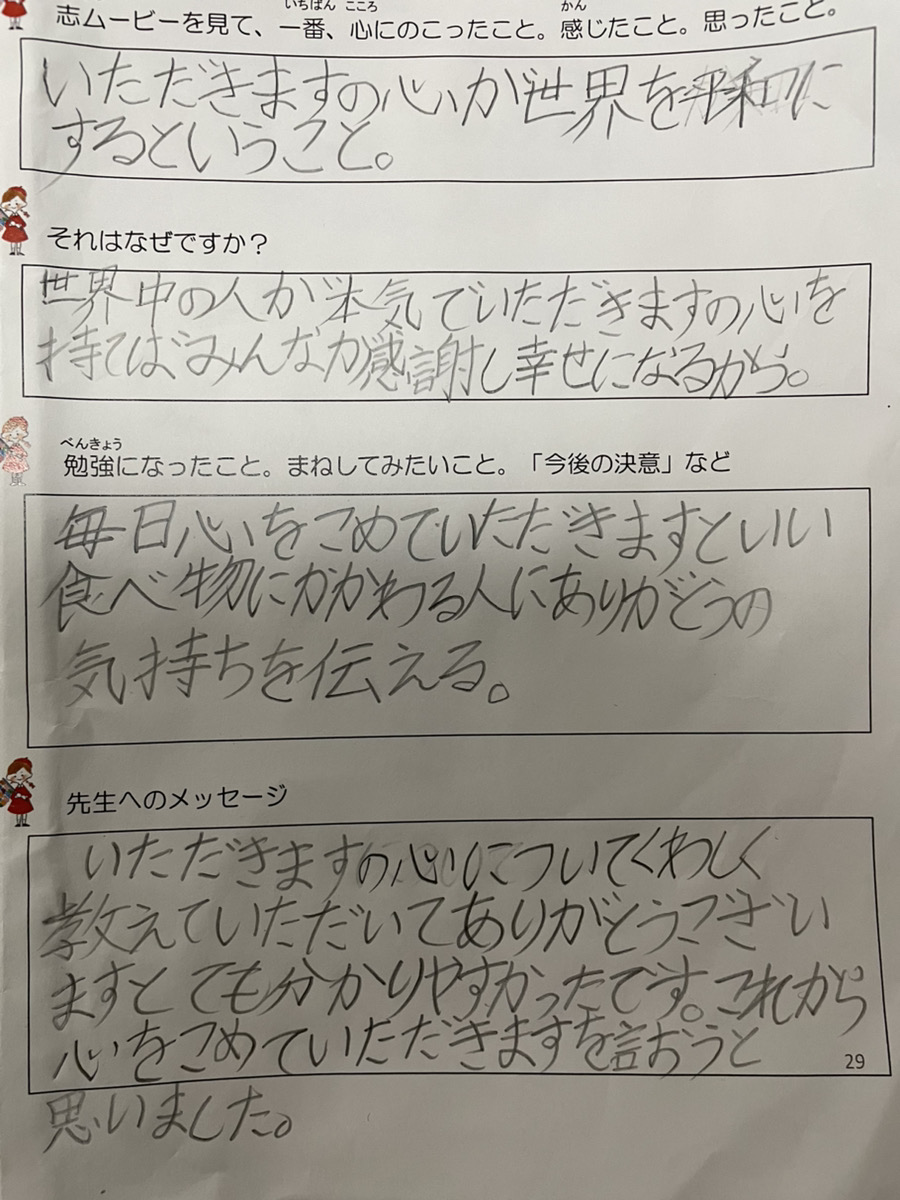 いちばん こころ かん
志ムービーを見て、一番、心にのこったこと。感じたこと。思ったこと。
いただきますの心が世界を平和に
するということ。
それはなぜですか？
世界中の人が本気でいただきますの心を
持てばみんなが感謝し幸せになるから。
べんきょう
勉強になったこと。まねしてみたいこと。「今後の決意」など
毎日心をこめていただきますといい
食べ物にかかわる人にありがとうの
気持ちを伝える。
先生へのメッセージ
いただきますの心についてくわしく
教えていただいてありがとうござい
ますとても分かりやすかったです。これから
心をこめていただきますを言おうと
29
思いました。